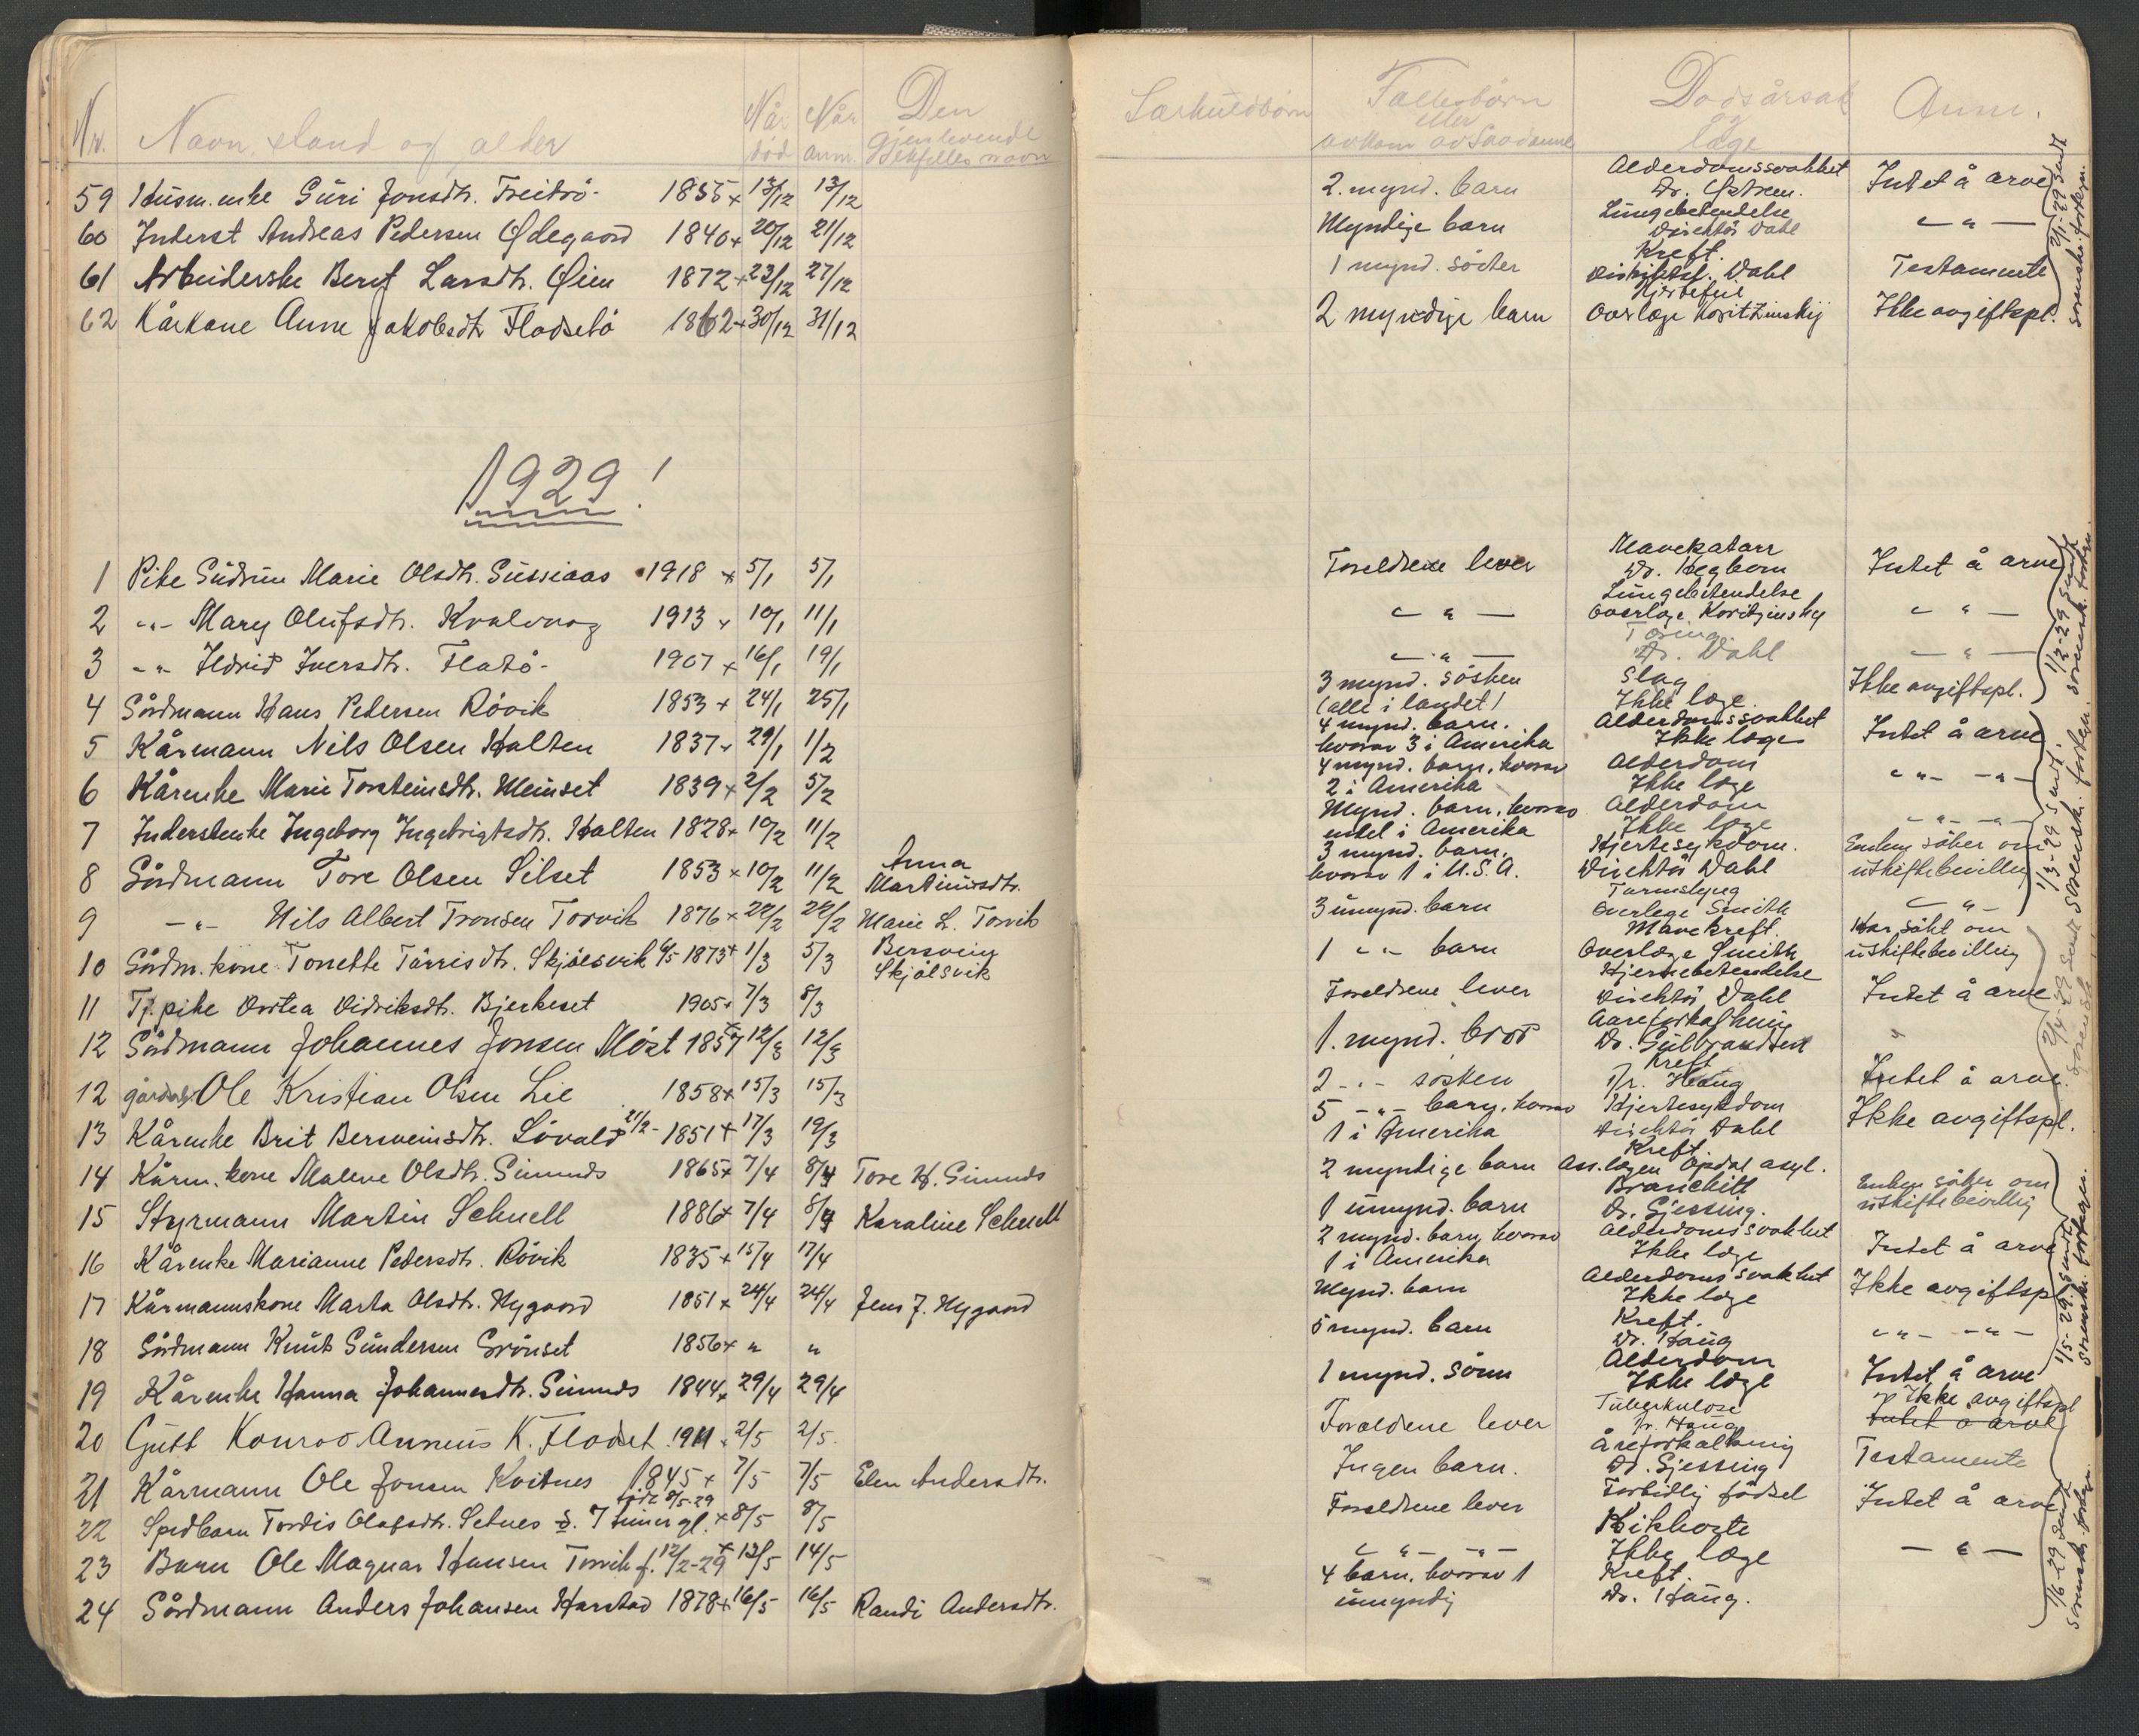 Nr. Navn, stand og alder Når død Når anm. Den gjenlevende ektefelles navn Særkuldbørn Fællesbørn eller avkom av saadanne Dødsårsak og læge Anm.
59 Husm.enke Guri Jonsdtr. Freitrö 1855 + 13/12 13/12 2 mynd. barn Alderdomssvakhet Dr. Intet å arve
60 Inderst Andreas Pedersen Ødegaard 1840 + 20/12 21/12 Myndige barn Lungebetendelse Direktör Dahl — " —
61 Arbeiderske Berit Larsdtr. Øien 1872 + 23/12 27/12 1 mynd. söster Kreft. Distriktsl. Dahl Testamente
62 Kårkone Anne Jakobsdtr Flodsetö 1862 + 30/12 31/12 2 myndige barn Hjertefeil Overlæge Koritzinskij Ikke avgiftspl.
2/1-29 sendt sorenskr. fortegn.
1929!
1 Pike Gudrun Marie Olsdtr. Sussiaas 1918 + 5/1 5/1 Foreldrene lever Mavekatarr Dr. Hegbom Intet å arve
2 -"- Mary Olufsdtr. Kvalvaag 1913 + 10/1 11/1 — " — Lungebetendelse Overlæge Koritzinsky — " —
3 -"- Ildrid Iversdtr. Flatö 1907 + 16/1 19/1 — " — Dr. Dahl — " —
4 Gårdmann Hans Pedersen Rövik 1853 + 24/1 25/1 3 mynd. sösken (alle i landet) Slag Ikke læge Ikke avgiftspl.
1/2-29 sendt sorenskr. fortegn.
5 Kårmann Nils Olsen Halten 1837 + 29/1 1/2 4 mynd. barn. hvorav 3 i Amerika Alderdomssvakhet Ikke læge Intet å arve
6 Kårenke Marie Torsteinsdtr. Meinset 1839 + 2/2 5/2 4 mynd. barn, hvorav 2 i Amerika Alderdom Ikke læge -"- -"-
7 Inderstenke Ingeborg Ingebrigtsdtr. Halten 1828 + 10/2 11/2 Mynd. barn, hvorav endel i Amerika Alderdom Ikke læge -"- -"-
8 Gårdmann Tore Olsen Silset 1853 + 10/2 11/2 Anna Martinusdtr. 3 mynd. barn. hvorav 1 i U.S.A. Hjertesykdom. Direktör Dahl Enken söker om uskiftebevilling
9 -"- Nils Albert Tronsen Torvik 1876 + 22/2 22/2 Marie L. Torvik 3 umynd. barn Tarmslyng Overlege Smith — " —
1/3-29 sendt sorenskr. fortegn.
10 Gårdm.kone Tonette Tårrisdtr. Skjölsvik 6/5 1873 + 1/3 5/3 Bersvein Skjölsvik 1 -"- barn Mavekreft. Overlæge Smith Har sökt om uskiftebevilling
11 Tj.pike Dortea Didriksdtr. Bjerkeset 1905 + 7/3 8/3 Foreldrene lever Hjernebetendelse Direktör Dahl Intet å arve
12 Gårdmann Johannes Jonsen Möst 1857 + 12/3 12/3 1 mynd. bror Aareforkalkning Dr. Gulbrandsen "
12 gårdm. Ole Kristian Olsen Lie 1858 + 15/3 15/3 2 -"- sösken Kreft Dr. Haug Intet å arve
13 Kårenke Brit Bersveinsdtr. Lövald 21/2- 1851 + 17/3 19/3 5 -"- barn, hvorav 1 i Amerika Hjertesykdom Direktör Dahl Ikke avgiftspl.
2/4-29 sendt sorenskr.
14 Kårm. kone Malene Olsdtr. Gimnes 1865 + 7/4 8/4 Tore H. Gimnes 2 myndige barn Kreft. Ass.lægen Opdal asyl.
15 Styrmann Martin Schnell 1886 + 7/4 8/4 Karoline Schnell 1 umynd. barn Bronchitt Dr. Gjessing. Enken söker om uskiftebevillig
16 Kårenke Marianne Pedersdtr. Rövik 1835 + 15/4 17/4 2 mynd. barn, hvorav 1 i Amerika Alderdomssvakhet Ikke læge Intet å arve
17 Kårmannskone Marta Olsdtr. Nygaard 1851 + 24/4 24/4 Jens J. Nygaard Mynd. barn Alderdomssvakhet Ikke læge Ikke avgiftspl
18 Gårdmann Knut Gundersen Grönset 1856 + " " 5 mynd. barn Kreft. Dr. Haug -"- -"-
19 Kårenke Hanna Johannesdtr. Gimnes 1844 + 29/4 29/4 1 mynd. sönn Alderdom Ikke læge Intet å arve
1/5-29 sendt sorenskr. fortegn.
20 Gutt Konrad Anneus K. Flodset 1911 + 2/5 2/5 Foreldrene lever Tuberkulose Dr. Haug Ikke avgiftspl Intet å arve
21 Kårmann Ole Jonsen Kvitnes 1845 + 7/5 7/5 Elen Andersdtr. Ingen barn. Åreforkalkning Dr. Gjessing Testamente
22 Spedbarn Tordis Olafsdtr. Setnes född 8/5-29 7 timer gl. + 8/5 8/5 Foreldrene lever Fortidlig födsel Intet å arve
23 Barn Ole Magnar Hansen Torvik f. 12/2-29 + 13/5 14/5 -"- -"- Kikhoste Ikke læge — " —
24 Gårdmann Anders Johansen Harstad 1878 + 16/5 16/5 Randi Andersdtr. 4 barn, hvorav 1 umyndig Kreft. Dr. Haug.
1/6-29 sendt sorenskr. fortegn.